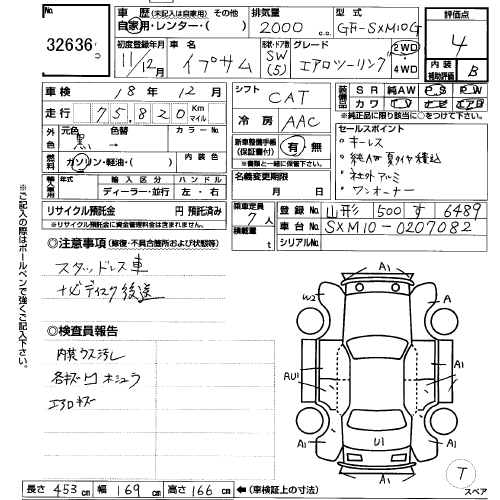 No.
32636
車歴
(未記入は自家用) その他
自家用・レンタル・( )
排気量
2000 c.c.
型式
GH-SXM10G
評価点
4
初度登録年月
11/12月
車名
イプサム
形状・ドア数
SW
(5)
グレード
エアロツーリング
2WD
・
4WD
内装
補助評価
B
車検
18年12月
走行
75,820 Km
マイル
外色
元色 色替
黒 →
カラーNo.
燃料
ガソリン・軽油・( )
内装色
輸入車用
年式
輸入区分
ディーラー・並行
ハンドル
左・右
リサイクル預託金 円 預託済み
※リサイクル預託金に資金管理料金は含まれません。
シフト
CAT
冷房
AAC
新車整備手帳
(保証書付)
有・無
※書類と一緒に保管して下さい。
名義変更期限
月 日
乗車定員
7人
積載量
t
装備品
SR 純AW PS PW
カワ TV ナビ エアB
※純正品に限り該当に○をつけて下さい。
セールスポイント
・キーレス
・社外アルミ
・ワンオーナー
登録No.
山形 500 す 6489
車台No.
SXM10-0207082
シリアルNo.
◎注意事項 (修復・不具合箇所および状態等)
スタッドレス車
ナビディスク後送
◎検査員報告
内装ウス汚し
エアロキズ
※ご記入の際はボールペンで強くご記入下さい。
W2
A
A1
A1
AU1
A1
A1
U1
T
スペア
長さ 453 cm 幅 169 cm 高さ 166 cm ←(車検証上の寸法)